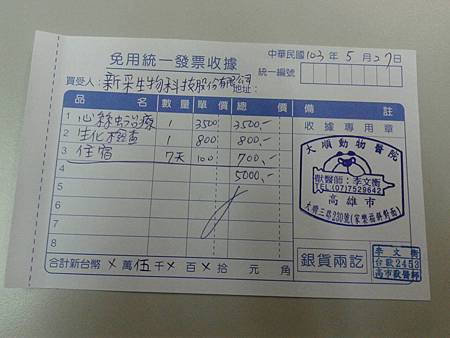 免用統一發票收據
中華民國103年5月27日
統一編號
買受人：新采生物科技股份有限公司 地址：
品名 數量 單價 總價 備註
1 心絲虫治療 1 3500 3500,-
2 生化檢查 1 800 800,-
3 住宿 7天 100 700,-
4 5000,-
5
6
7
8
合計新台幣 × 萬 伍 千 × 百 × 拾 元 角
收據專用章
大順動物醫院
獸醫師：李文衡
TEL(07)7529642
高雄市
大順三路230號(家樂福斜對面)
銀貨兩訖
李文衡
台獸2453
高市獸醫師